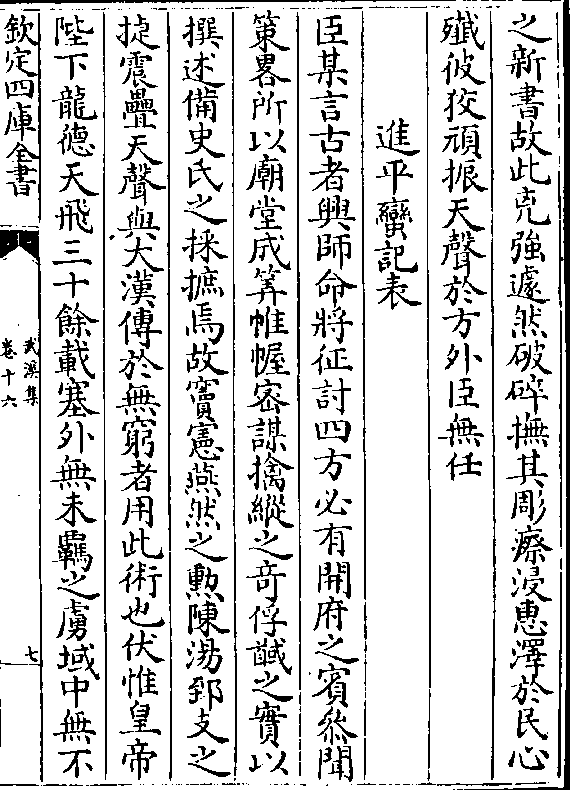 之新書故此克強遽然破碎撫其彫瘵浸惠澤於民心
殲彼狡頑振天聲於方外臣無任
進平蠻記表
臣某言古者興師命將征討四方必有開府之賓叅聞
策畧所以廟堂成筭帷幄宻謀擒縱之竒俘馘之實以
撰述備史氏之採摭焉故竇憲燕然之勲陳湯郅支之
捷震疊天聲與大漢傳於無窮者用此術也伏惟皇帝
陛下龍徳天飛三十餘載塞外無未羈之虜域中無不
欽定四庫全書
武溪集
卷十六
七